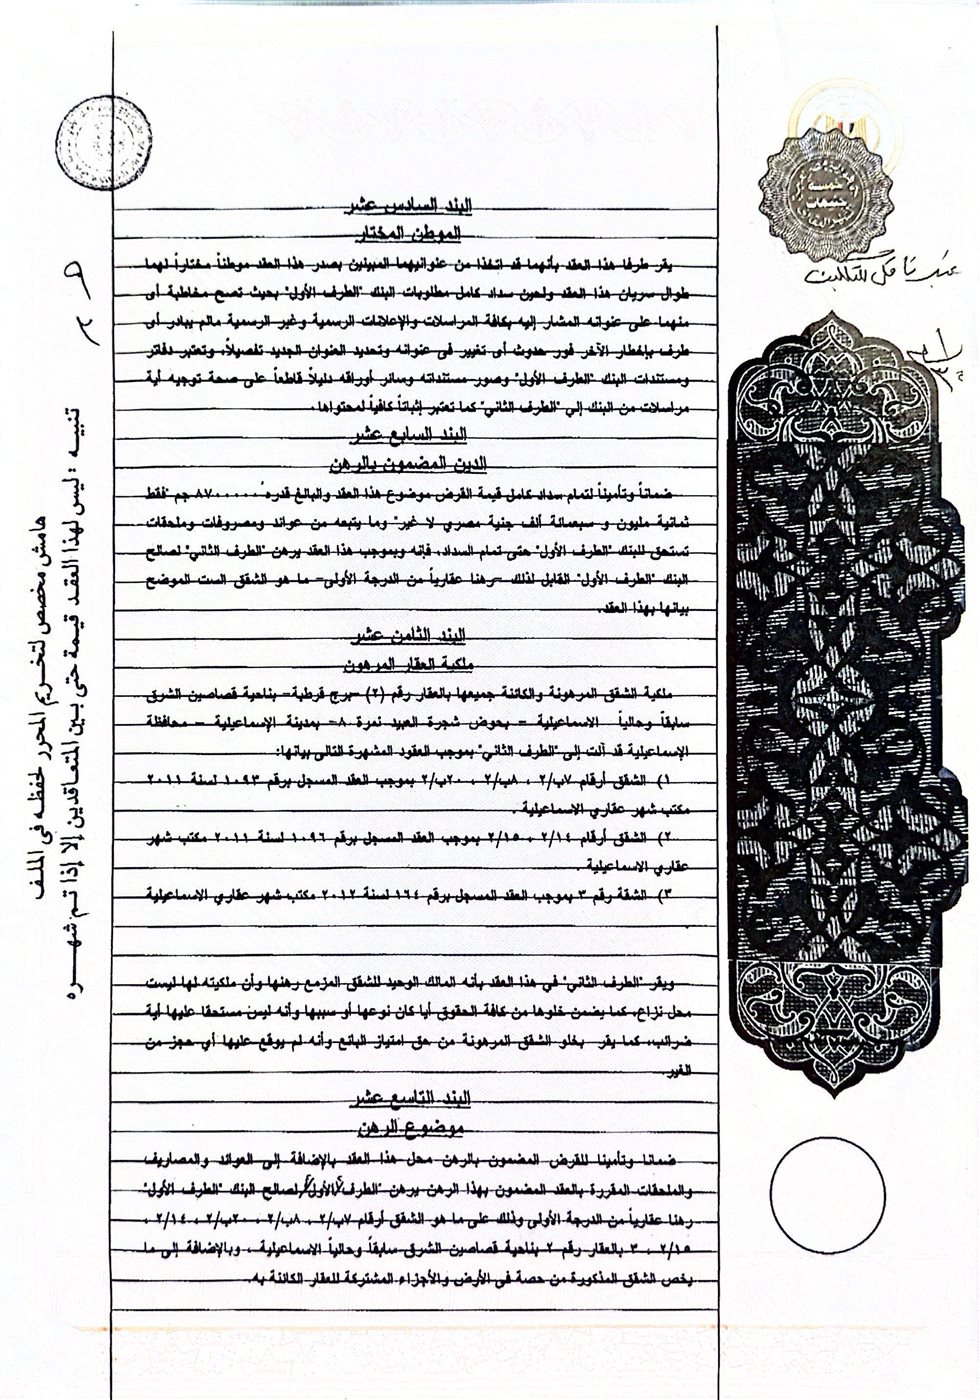 البند السادس عشر
الموطن المختار
يقر طرفا هذا العقد بأنهما قد اتخذا من عنوانيهما المبينين بصدر هذا العقد موطناً مختاراً لهما
طوال سريان هذا العقد ولحين سداد كامل مطلوبات البنك "الطرف الأول" بحيث تصح مخاطبة أى
منهما على عنوانه المشار إليه بكافة المراسلات والإعلانات الرسمية وغير الرسمية مالم يبادر أى
طرف بإخطار الآخر فور حدوث أى تغيير فى عنوانه وتحديد العنوان الجديد تفصيلاً، وتعتبر دفاتر
ومستندات البنك "الطرف الأول" وصور مستنداته وسائر أوراقه دليلاً قاطعاً على صحة توجيه أية
مراسلات من البنك إلي "الطرف الثاني" كما تعتبر إثباتاً كافياً لمحتواها.
البند السابع عشر
الدين المضمون بالرهن
ضماناً وتأميناً لتمام سداد كامل قيمة القرض موضوع هذا العقد والبالغ قدره ٨٧٠٠٠٠٠ جم "فقط
ثمانية مليون و سبعمائة ألف جنية مصري لا غير" وما يتبعه من عوائد ومصروفات وملحقات
تستحق للبنك "الطرف الأول" حتى تمام السداد، فإنه وبموجب هذا العقد يرهن "الطرف الثاني" لصالح
البنك "الطرف الأول" القابل لذلك –رهنا عقارياً من الدرجة الأولى– ما هو الشقق الست الموضح
بيانها بهذا العقد.
البند الثامن عشر
ملكية العقار المرهون
ملكية الشقق المرهونة والكائنة جميعها بالعقار رقم (٢) –برج قرطبة– بناحية قصاصين الشرق
سابقاً وحالياً الاسماعيلية – بحوض شجرة العبيد نمرة ٨– بمدينة الإسماعيلية – محافظة
الإسماعيلية قد آلت إلى "الطرف الثاني" بموجب العقود المشهرة التالى بيانها:
١) الشقق أرقام ٧ب/٢ ، ٨ب/٢ ، ٢٠ب/٢ بموجب العقد المسجل برقم ١٠٩٣ لسنة ٢٠١١
مكتب شهر عقاري الاسماعيلية .
٢) الشقق أرقام ٢/١٤ ، ٢/١٥ بموجب العقد المسجل برقم ١٠٩٦ لسنة ٢٠١١ مكتب شهر
عقاري الاسماعيلية .
٣) الشقة رقم ٣ بموجب العقد المسجل برقم ١٦٤ لسنة ٢٠١٢ مكتب شهر عقاري الاسماعيلية
ويقر "الطرف الثاني" في هذا العقد بأنه المالك الوحيد للشقق المزمع رهنها وأن ملكيته لها ليست
محل نزاع، كما يضمن خلوها من كافة الحقوق أيا كان نوعها أو سببها وأنه ليس مستحقا عليها أية
ضرائب، كما يقر بخلو الشقق المرهونة من حق امتياز البائع وأنه لم يوقع عليها أي حجز من
الغير.
البند التاسع عشر
موضوع الرهن
ضمانا وتأمينا للقرض المضمون بالرهن محل هذا العقد بالإضافة إلى العوائد والمصاريف
والملحقات المقررة بالعقد المضمون بهذا الرهن يرهن "الطرف الأول" لصالح البنك "الطرف الأول"
رهنا عقارياً من الدرجة الأولى وذلك على ما هو الشقق أرقام ٧ب/٢ ، ٨ب/٢ ، ٢٠ب/٢ ، ٢/١٤ ،
٢/١٥ ، ٣ بالعقار رقم ٢ بناحية قصاصين الشرق سابقاً وحالياً الاسماعيلية ، وبالإضافة إلى ما
يخص الشقق المذكورة من حصة فى الأرض والأجزاء المشتركة للعقار الكائنة به.
تنبيه : ليس لهذا العقد قيمة حتى بين المتعاقدين إلا إذا تم شهره
هامش مخصص لتخريم المحرر لحفظه فى الملف
خمسة
جنيهات